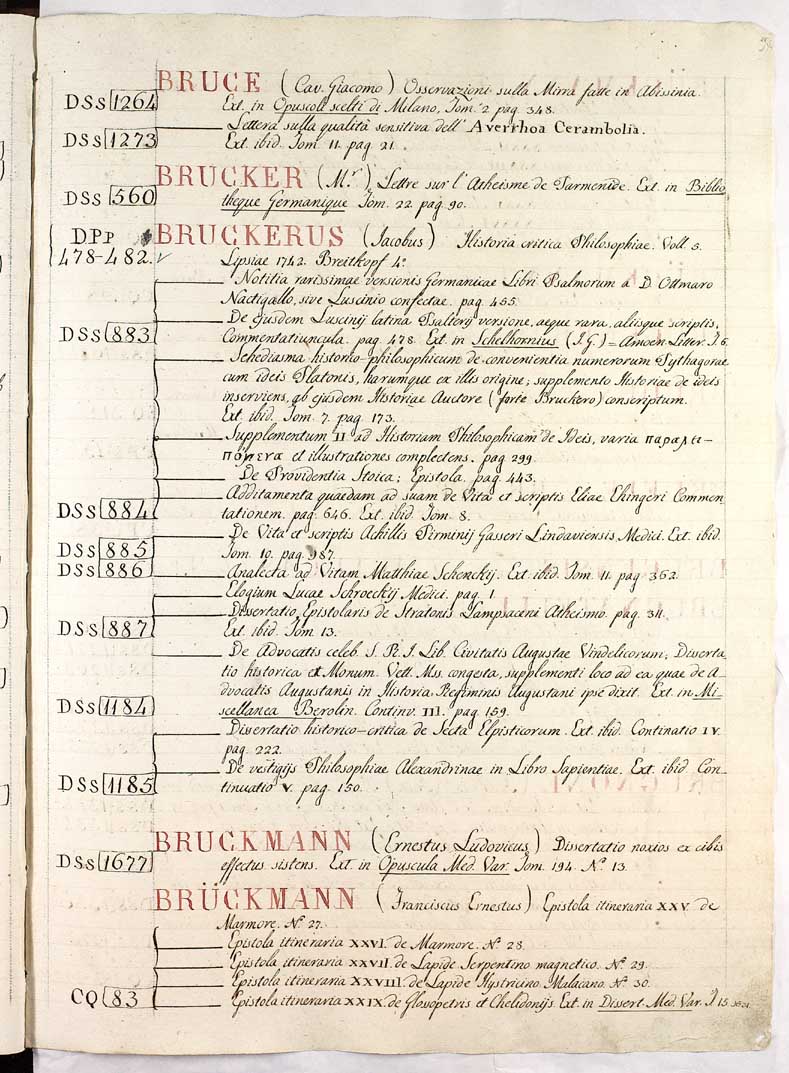 BRUCE (Cav. Giacomo) Osservazioni sulla Mirra fatte in Abissinia.
DSs 1264 Ext. in Opuscoli scelti di Milano, Tom. 2 pag. 348.
Lettera sulla qualità sensitiva dell' Averrhoa Cerambolia.
DSs 1273 Ext. ibid. Tom. 11. pag. 21.
BRUCKER (M.r) Lettre sur l'Atheisme de Parmenide. Ext. in Biblio
DSs 560 theque Germanique Tom. 22. pag. 90.
DPp BRUCKERUS (Jacobus) Historia critica Philosophiae. Voll 5.
478-482. Lypsiae 1742. Breitkopf 4.o
Notitia rarissimae versionis Germanicae Libri Psalmorum a D. Ottmaro
Nactigallo, sive Luscinio confectae. pag. 455.
De ejusdem Luscinij latina Psalterij versione, aeque rara, aliisque scriptis,
DSs 883 Commentatiuncula. pag. 478. Ext. in Schelhornius (J. G.) = Amoen. Litter. T. 6.
Schediasma historico-philosophicum de convenientia numerorum Pythagorae
cum ideis Platonis, harumque ex illis origine; supplemento Historiae de ideis
inserviens, ab ejusdem Historiae Auctore (forte Bruckero) conscriptum.
Ext. ibid. Tom. 7. pag. 173.
Supplementum II. ad Historiam Philosophicam de Ideis, varia παραλει-
πόμενα et illustrationes complectens. pag. 299.
De Providentia Stoica; Epistola. pag. 443.
Additamenta quaedam ad suam de Vita et scriptis Eliae Ehingeri Commen-
DSs 884 tationem. pag. 646. Ext. ibid. Tom. 8.
De Vita et scriptis Achillis Pirminij Gasseri Lindaviensis, Medici. Ext. ibid.
DSs 885 Tom. 10. pag. 987.
DSs 886 Analecta ad Vitam Matthiae Schenckij. Ext. ibid. Tom. 11. pag. 362.
Elogium Lucae Schroeckij Medici. pag. 1.
Dissertatio Epistolaris de Stratonis Lampsaceni Atheismo. pag. 311.
DSs 887 Ext. ibid. Tom. 13.
De Advocatis celeb. S. R. I. Lib. Civitatis Augustae Vindelicorum; Disserta
tio historica ex Monum. Vett. Mss. congesta, supplementi loco ad ea quae de A-
dvocatis Augustanis in Historia Regiminis Augustani ipse dixit. Ext. in Mi-
DSs 1184 scellanea Berolin. Continv. III. pag. 159.
Dissertatio historico-critica de Secta Elpisticorum. Ext. ibid. Continatio IV.
pag. 222.
De vestigijs Philosophiae Alexandrinae in Libro Sapientiae. Ext. ibid. Con-
DSs 1185 tinuatio V. pag. 150.
BRUCKMANN (Ernestus Ludovicus) Dissertatio noxios ex cibis
DSs 1677 effectus sistens. Ext. in Opuscula Med. Var. Tom. 194. N.o 13.
BRÜCKMANN (Franciscus Ernestus) Epistola itineraria XXV. de
Marmore. N.o 27.
Epistola itineraria XXVI. de Marmore. N.o 28.
Epistola itineraria XXVII. de Lapide Serpentino magnetico. N.o 29.
Epistola itineraria XXVIII. de Lapide Hystricino Malacano. N.o 30.
CQ 83 Epistola itineraria XXIX. de Glossopetris et Chelidonijs. Ext. in Dissert. Med. Var. T. 15.